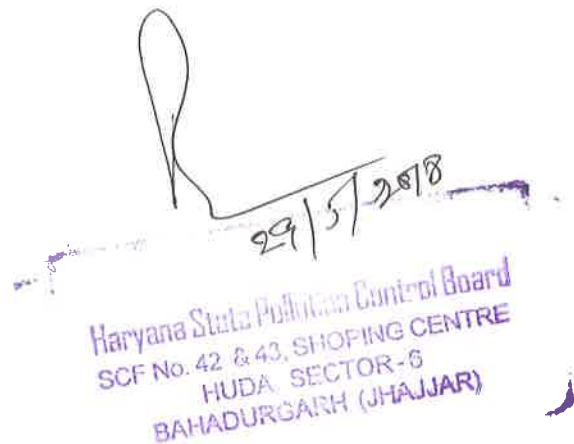 29/5/2018
Haryana State Pollution Control Board
SCF No. 42 & 43, SHOPING CENTRE
HUDA SECTOR-6
BAHADURGARH (JHAJJAR)